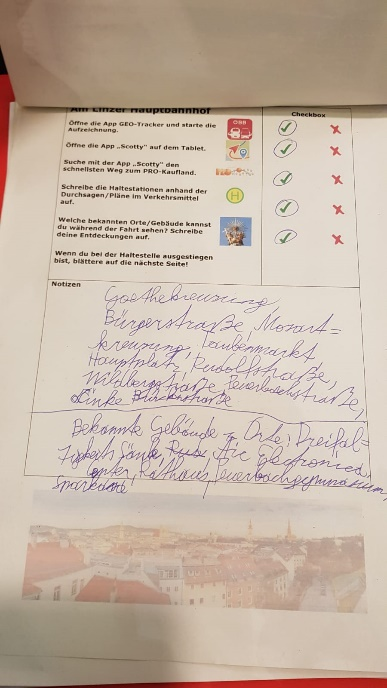 Am Linzer Hauptbahnhof
Checkbox
Öffne die App GEO-Tracker und starte die
Aufzeichnung.
ÖBB
Öffne die App „Scotty“ auf dem Tablet.
Suche mit der App „Scotty“ den
schnellsten Weg zum PRO-Kaufland.
Schreibe die Haltestationen anhand der
Durchsagen/Pläne im Verkehrsmittel
auf.
H
Welche bekannten Orte/Gebäude kannst
du während der Fahrt sehen? Schreibe
deine Entdeckungen auf.
Wenn du bei der Haltestelle ausgestiegen
bist, blättere auf die nächste Seite!
Notizen
Goethekreuzung
Bürgerstraße, Mozart=
kreuzung, Taubenmarkt
Hauptplatz, Rudolfstraße,
Wildbergstraße, Peuerbachstraße,
Linke Brückenstraße
Bekannte Gebäude + Orte: Dreifal=
tigkeits Säule, Ars Electronica
Center, Rathaus, Peuerbachgymnasium,
Sparkasse